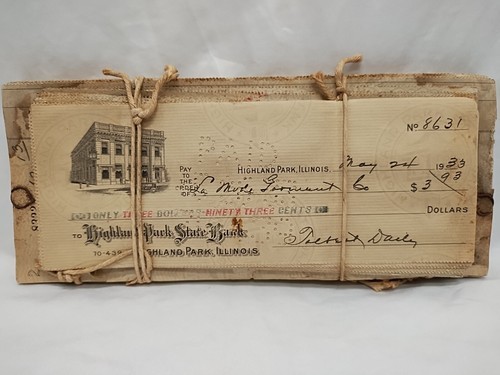 No 8631
PAY TO THE ORDER OF
HIGHLAND PARK, ILLINOIS, May 24 1933
La Mode Garment Co $ 3 93
ONLY THREE DOL NINETY THREE CENTS
DOLLARS
TO Highland Park State Bank
70-439 HIGHLAND PARK, ILLINOIS